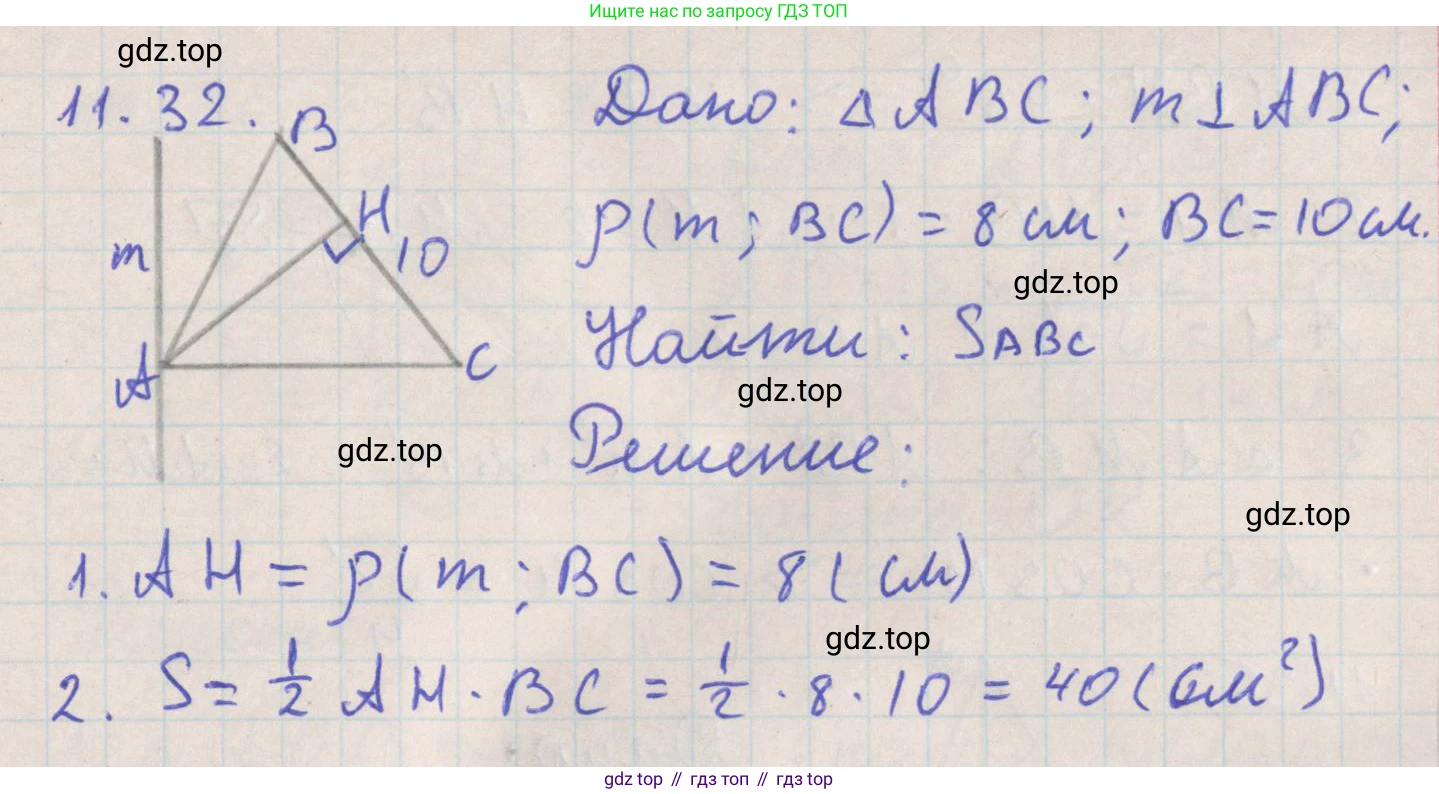 Ищите нас по запросу ГДЗ ТОП
gdz.top
11.32.
B
H
10
m
A
C
Дано: △ABC; m⊥ABC;
ρ(m; BC) = 8 см; BC = 10 см.
gdz.top
Найти: SABC
gdz.top
Решение:
gdz.top
gdz.top
1. AH = ρ(m; BC) = 8 (см)
gdz.top
2. S = 1/2 AH · BC = 1/2 · 8 · 10 = 40 (см²)
gdz top // гдз топ // гдз top